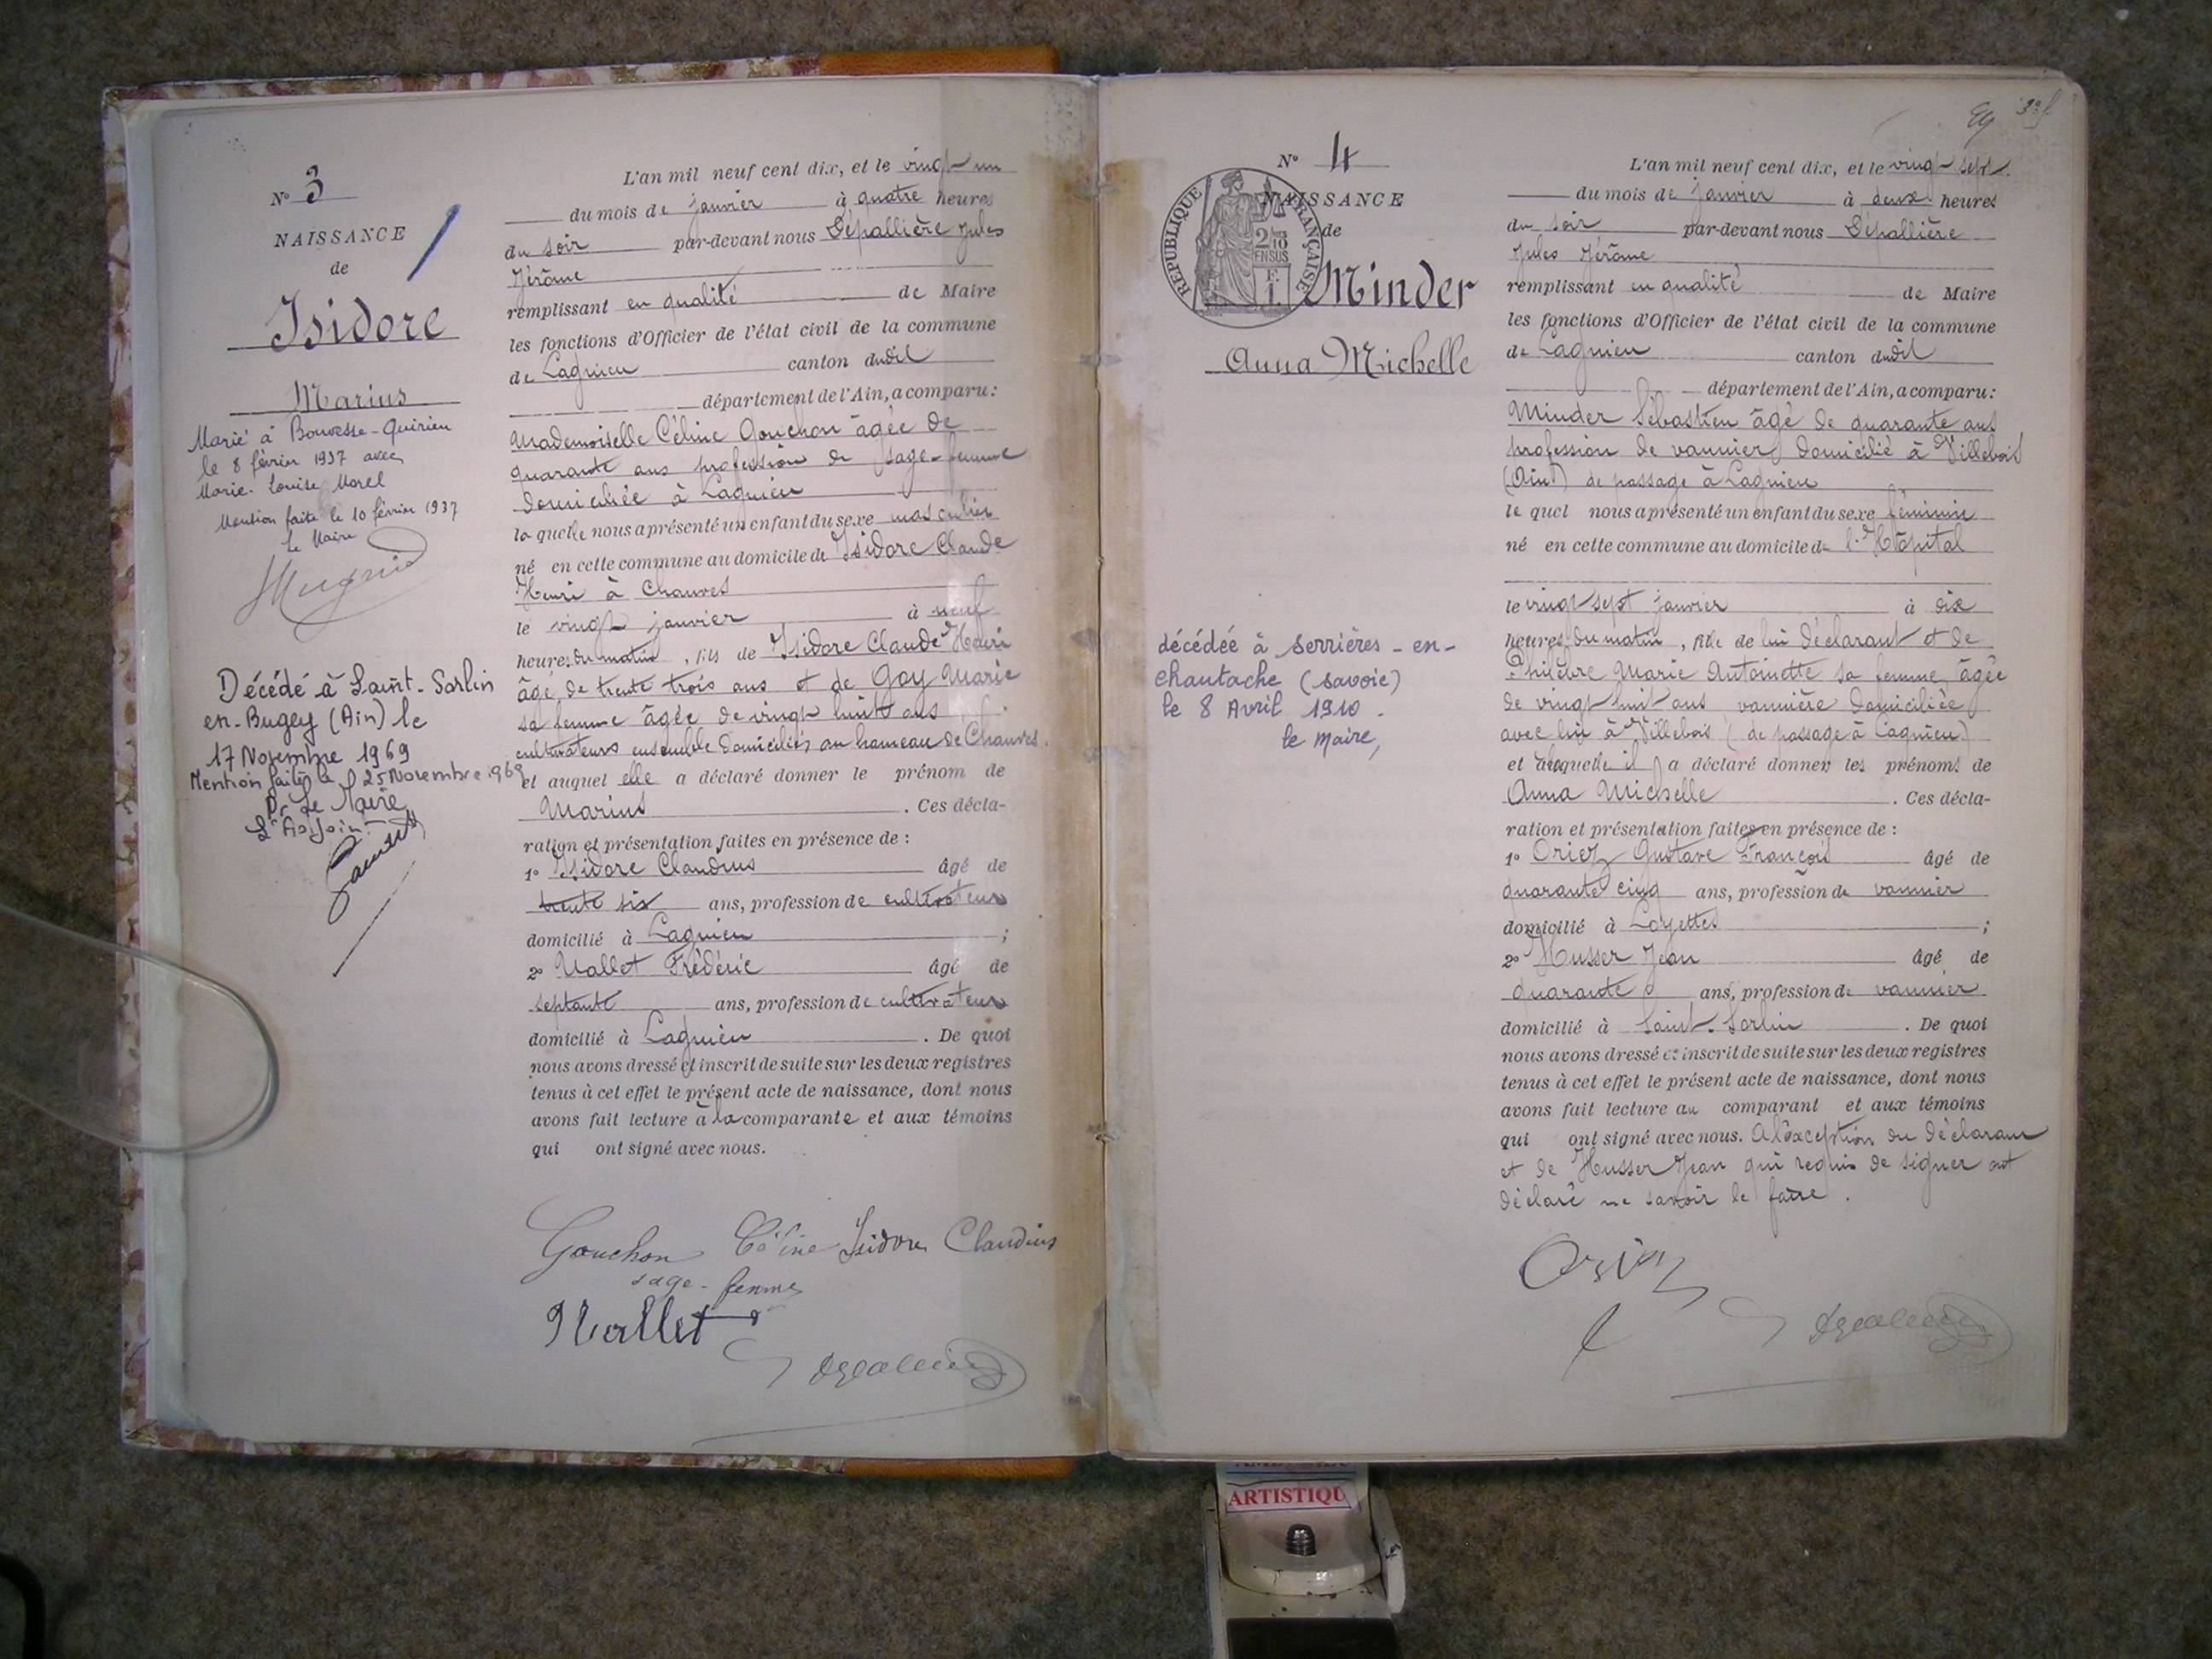 N° 3
NAISSANCE
de
Isidore
Marius
Marié à Bouvesse-Quirieu
le 8 février 1937 avec
Marie-Louise Morel
Mention faite le 10 février 1937
Le Maire
Décédé à Saint-Sorlin
en-Bugey (Ain) le
17 Novembre 1969
Mention faite le 25 Novembre 1969
Pr Le Maire
L'Adjoint
L'an mil neuf cent dix, et le vingt un
du mois de janvier à quatre heures
du soir par-devant nous Dépallière Jules
Jérôme
remplissant en qualité de Maire
les fonctions d'Officier de l'état civil de la commune
de Lagnieu canton dudit
département de l'Ain, a comparu:
Mademoiselle Céline Gouchon âgée de
quarante ans profession de sage-femme
domiciliée à Lagnieu
laquelle nous a présenté un enfant du sexe masculin
né en cette commune au domicile de Isidore Claude
Henri à Chauves
le vingt janvier à neuf
heures du matin, fils de Isidore Claude Henri
âgé de trente trois ans et de Goy Marie
sa femme âgée de vingt huit ans
cultivateurs ensemble domiciliés au hameau de Chauves.
et auquel elle a déclaré donner le prénom de
Marius . Ces décla-
ration et présentation faites en présence de :
1° Isidore Claudius âgé de
trente six ans, profession de cultivateur
domicilié à Lagnieu ;
2° Mallet Frédéric âgé de
septante ans, profession de cultivateur
domicilié à Lagnieu . De quoi
nous avons dressé et inscrit de suite sur les deux registres
tenus à cet effet le présent acte de naissance, dont nous
avons fait lecture à la comparante et aux témoins
qui ont signé avec nous.
Gouchon Céline Isidore Claudius
sage-femme
Mallet
N° 4
NAISSANCE
de
RÉPUBLIQUE FRANÇAISE
2/10
EN SUS
F.
1.
Minder
Anna Michelle
décédée à Serrières-en-
chautache (Savoie)
le 8 Avril 1910.
le Maire,
L'an mil neuf cent dix, et le vingt sept
du mois de janvier à deux heures
du soir par-devant nous Dépallière
Jules Jérôme
remplissant en qualité de Maire
les fonctions d'Officier de l'état civil de la commune
de Lagnieu canton dudit
département de l'Ain, a comparu:
Minder Sébastien âgé de quarante ans
profession de vannier domicilié à Villebois
(Ain) de passage à Lagnieu
lequel nous a présenté un enfant du sexe féminin
né en cette commune au domicile de l'Hôpital
le vingt sept janvier à dix
heures du matin, fille de lui déclarant et de
Marie Antoinette sa femme, âgée
de vingt huit ans vannière domiciliée
avec lui à Villebois (de passage à Lagnieu)
et à laquelle il a déclaré donner les prénoms de
Anna Michelle . Ces décla-
ration et présentation faites en présence de :
1° Oriez Gustave François âgé de
quarante cinq ans, profession de vannier
domicilié à Loyettes ;
2° Husser Jean âgé de
quarante ans, profession de vannier
domicilié à Saint-Sorlin . De quoi
nous avons dressé et inscrit de suite sur les deux registres
tenus à cet effet le présent acte de naissance, dont nous
avons fait lecture au comparant et aux témoins
qui ont signé avec nous. A l'exception du déclarant
et de Husser Jean qui requis de signer ont
déclaré ne savoir le faire.
Oriez
ARTISTIQU